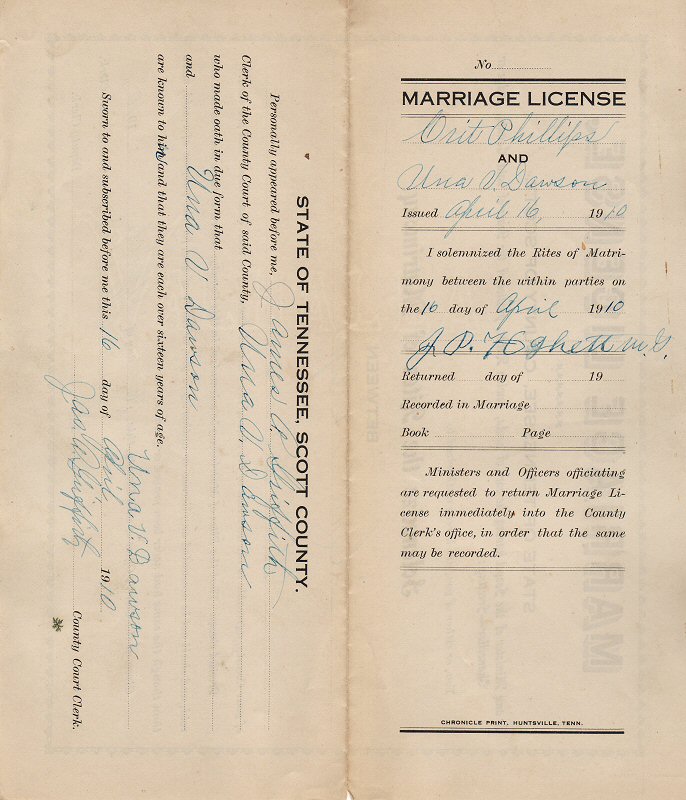 No
MARRIAGE LICENSE
Orit Phillips
AND
Una V. Dawson
Issued April 16, 1910
I solemnized the Rites of Matri-
mony between the within parties on
the 16 day of April 1910
J. P.
Returned day of 19
Recorded in Marriage
Book Page
Ministers and Officers officiating
are requested to return Marriage Li-
cense immediately into the County
Clerk's office, in order that the same
may be recorded.
CHRONICLE PRINT, HUNTSVILLE, TENN.
STATE OF TENNESSEE, SCOTT COUNTY.
Personally appeared before me, James A. Griffith
Clerk of the County Court of said County, Una V. Dawson
who made oath in due form that
and Una V Dawson
are known to him and that they are each over sixteen years of age.
Una V. Dawson
Sworn to and subscribed before me this 16 day of April 1910
Jas A Griffith County Court Clerk.